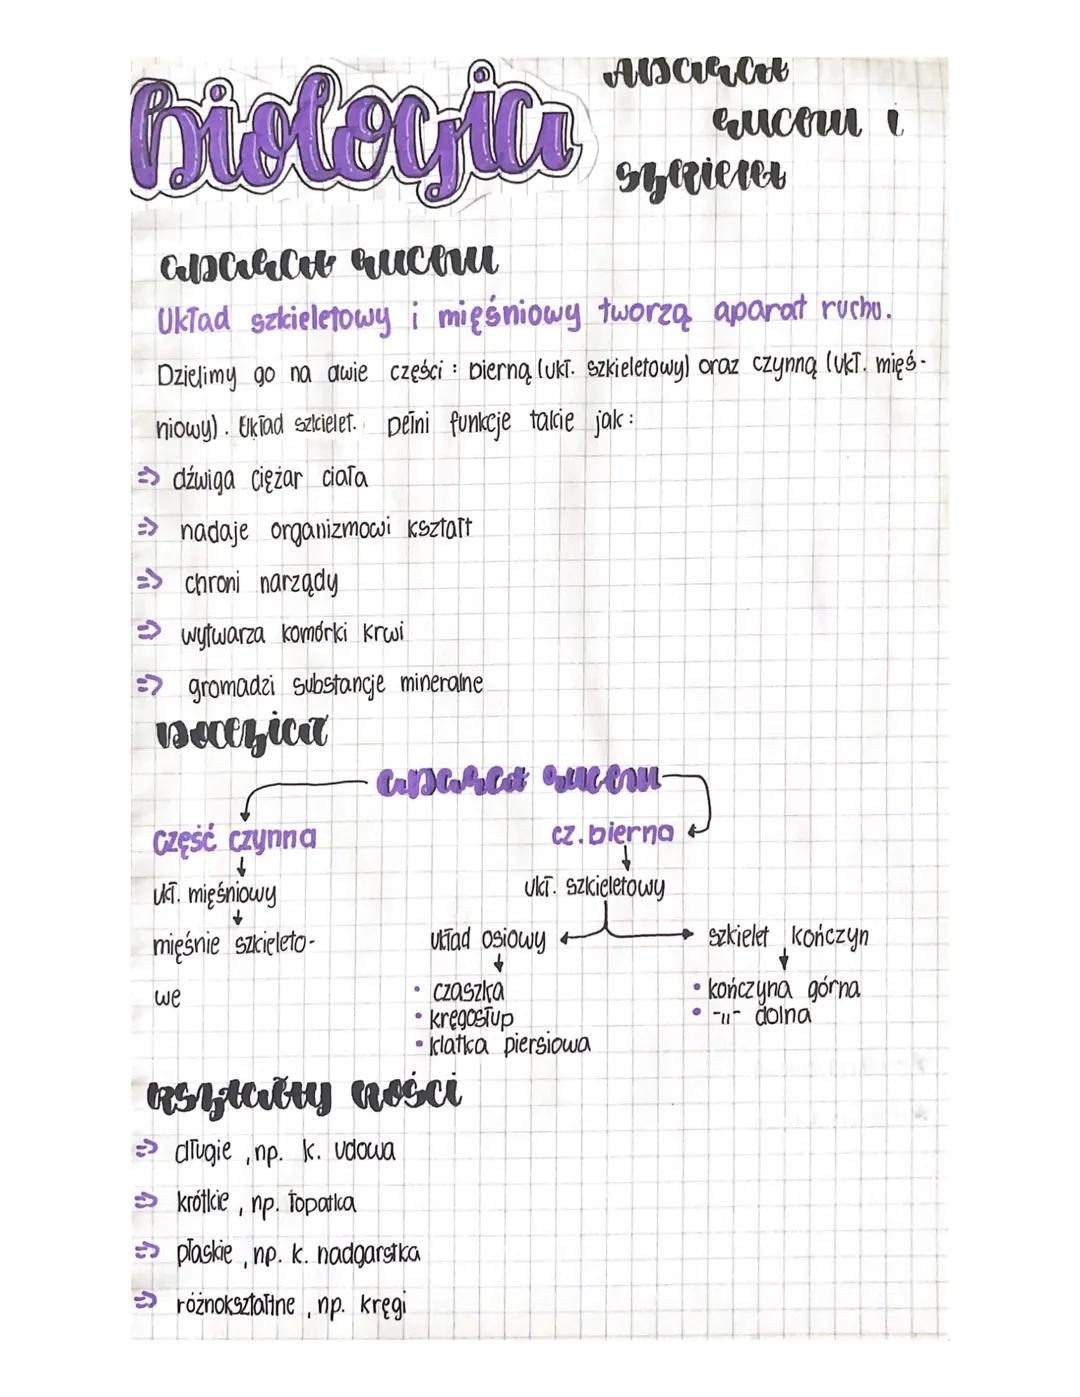 Biologia
Aparat
ruchu i
szkielet
aparat ruchu
Układ szkieletowy i mięśniowy tworzą aparat ruchu.
Dzielimy go na dwie części: bierną (ukł. szkieletowy) oraz czynną (ukł. mięś-
niowy). Układ szkielet. pełni funkcje takie jak:
=> dźwiga ciężar ciała
=> nadaje organizmowi kształt
=> chroni narządy
=> wytwarza komórki krwi
=> gromadzi substancje mineralne
podział
aparat ruchu
część czynna
cz. bierna
ukł. mięśniowy
ukł. szkieletowy
mięśnie szkieleto-
we
układ osiowy
szkielet kończyn
• czaszka
• kręgosłup
• klatka piersiowa
• kończyna górna
• -"- dolna
kształty kości
=> długie, np. k. udowa
=> krótkie, np. łopatka
=> płaskie, np. k. nadgarstka
=> różnokształtne, np. kręgi